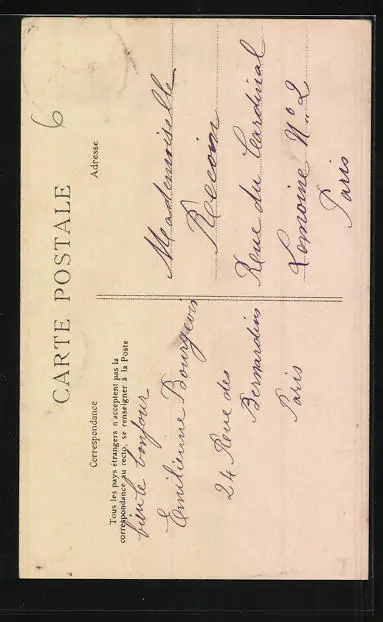 6
CARTE POSTALE
Correspondance
Tous les pays étrangers n'acceptent pas la
correspondance au recto, se renseigner à la Poste
bien le bonjour
Emilienne Bourgeois
24 Rue des
Bernardins
Paris
Adresse
Mademoiselle
Rue du Cardinal
Lemoine N° 2
Paris